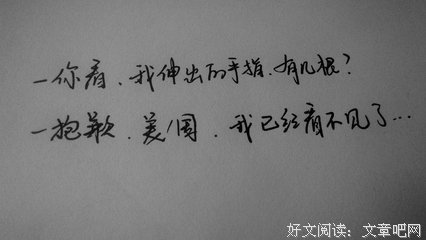 —你看、我伸出的手指、有几根?
—抱歉、我已经看不见了...
好文阅读:文章吧网